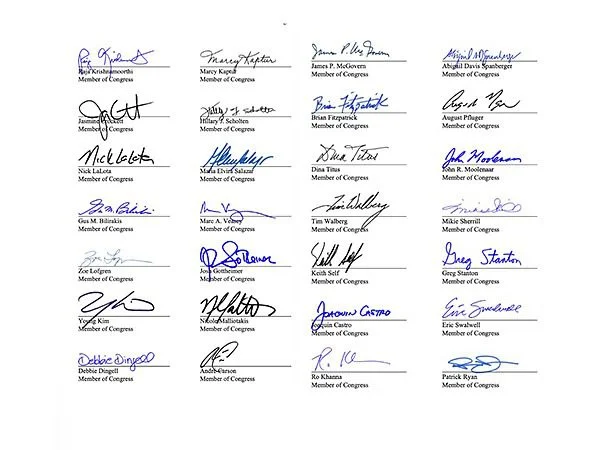 Raja Krishnamoorthi
Member of Congress
Marcy Kaptur
Marcy Kaptur
Member of Congress
James P. McGovern
James P. McGovern
Member of Congress
Abigail Davis Spanberger
Member of Congress
Jasmine Crockett
Member of Congress
Hillary J. Scholten
Hillary J. Scholten
Member of Congress
Brian Fitzpatrick
Brian Fitzpatrick
Member of Congress
August Pfluger
Member of Congress
Nick LaLota
Nick LaLota
Member of Congress
Maria Elvira Salazar
Member of Congress
Dina Titus
Dina Titus
Member of Congress
John Moolenaar
John R. Moolenaar
Member of Congress
Gus M. Bilirakis
Gus M. Bilirakis
Member of Congress
Marc A. Veasey
Member of Congress
Tim Walberg
Tim Walberg
Member of Congress
Mikie Sherrill
Member of Congress
Zoe Lofgren
Member of Congress
Josh Gottheimer
Member of Congress
Keith Self
Keith Self
Member of Congress
Greg Stanton
Greg Stanton
Member of Congress
Young Kim
Member of Congress
Nicole Malliotakis
Member of Congress
Joaquin Castro
Joaquin Castro
Member of Congress
Eric Swalwell
Eric Swalwell
Member of Congress
Debbie Dingell
Debbie Dingell
Member of Congress
André Carson
Member of Congress
Ro Khanna
Member of Congress
Patrick Ryan
Member of Congress